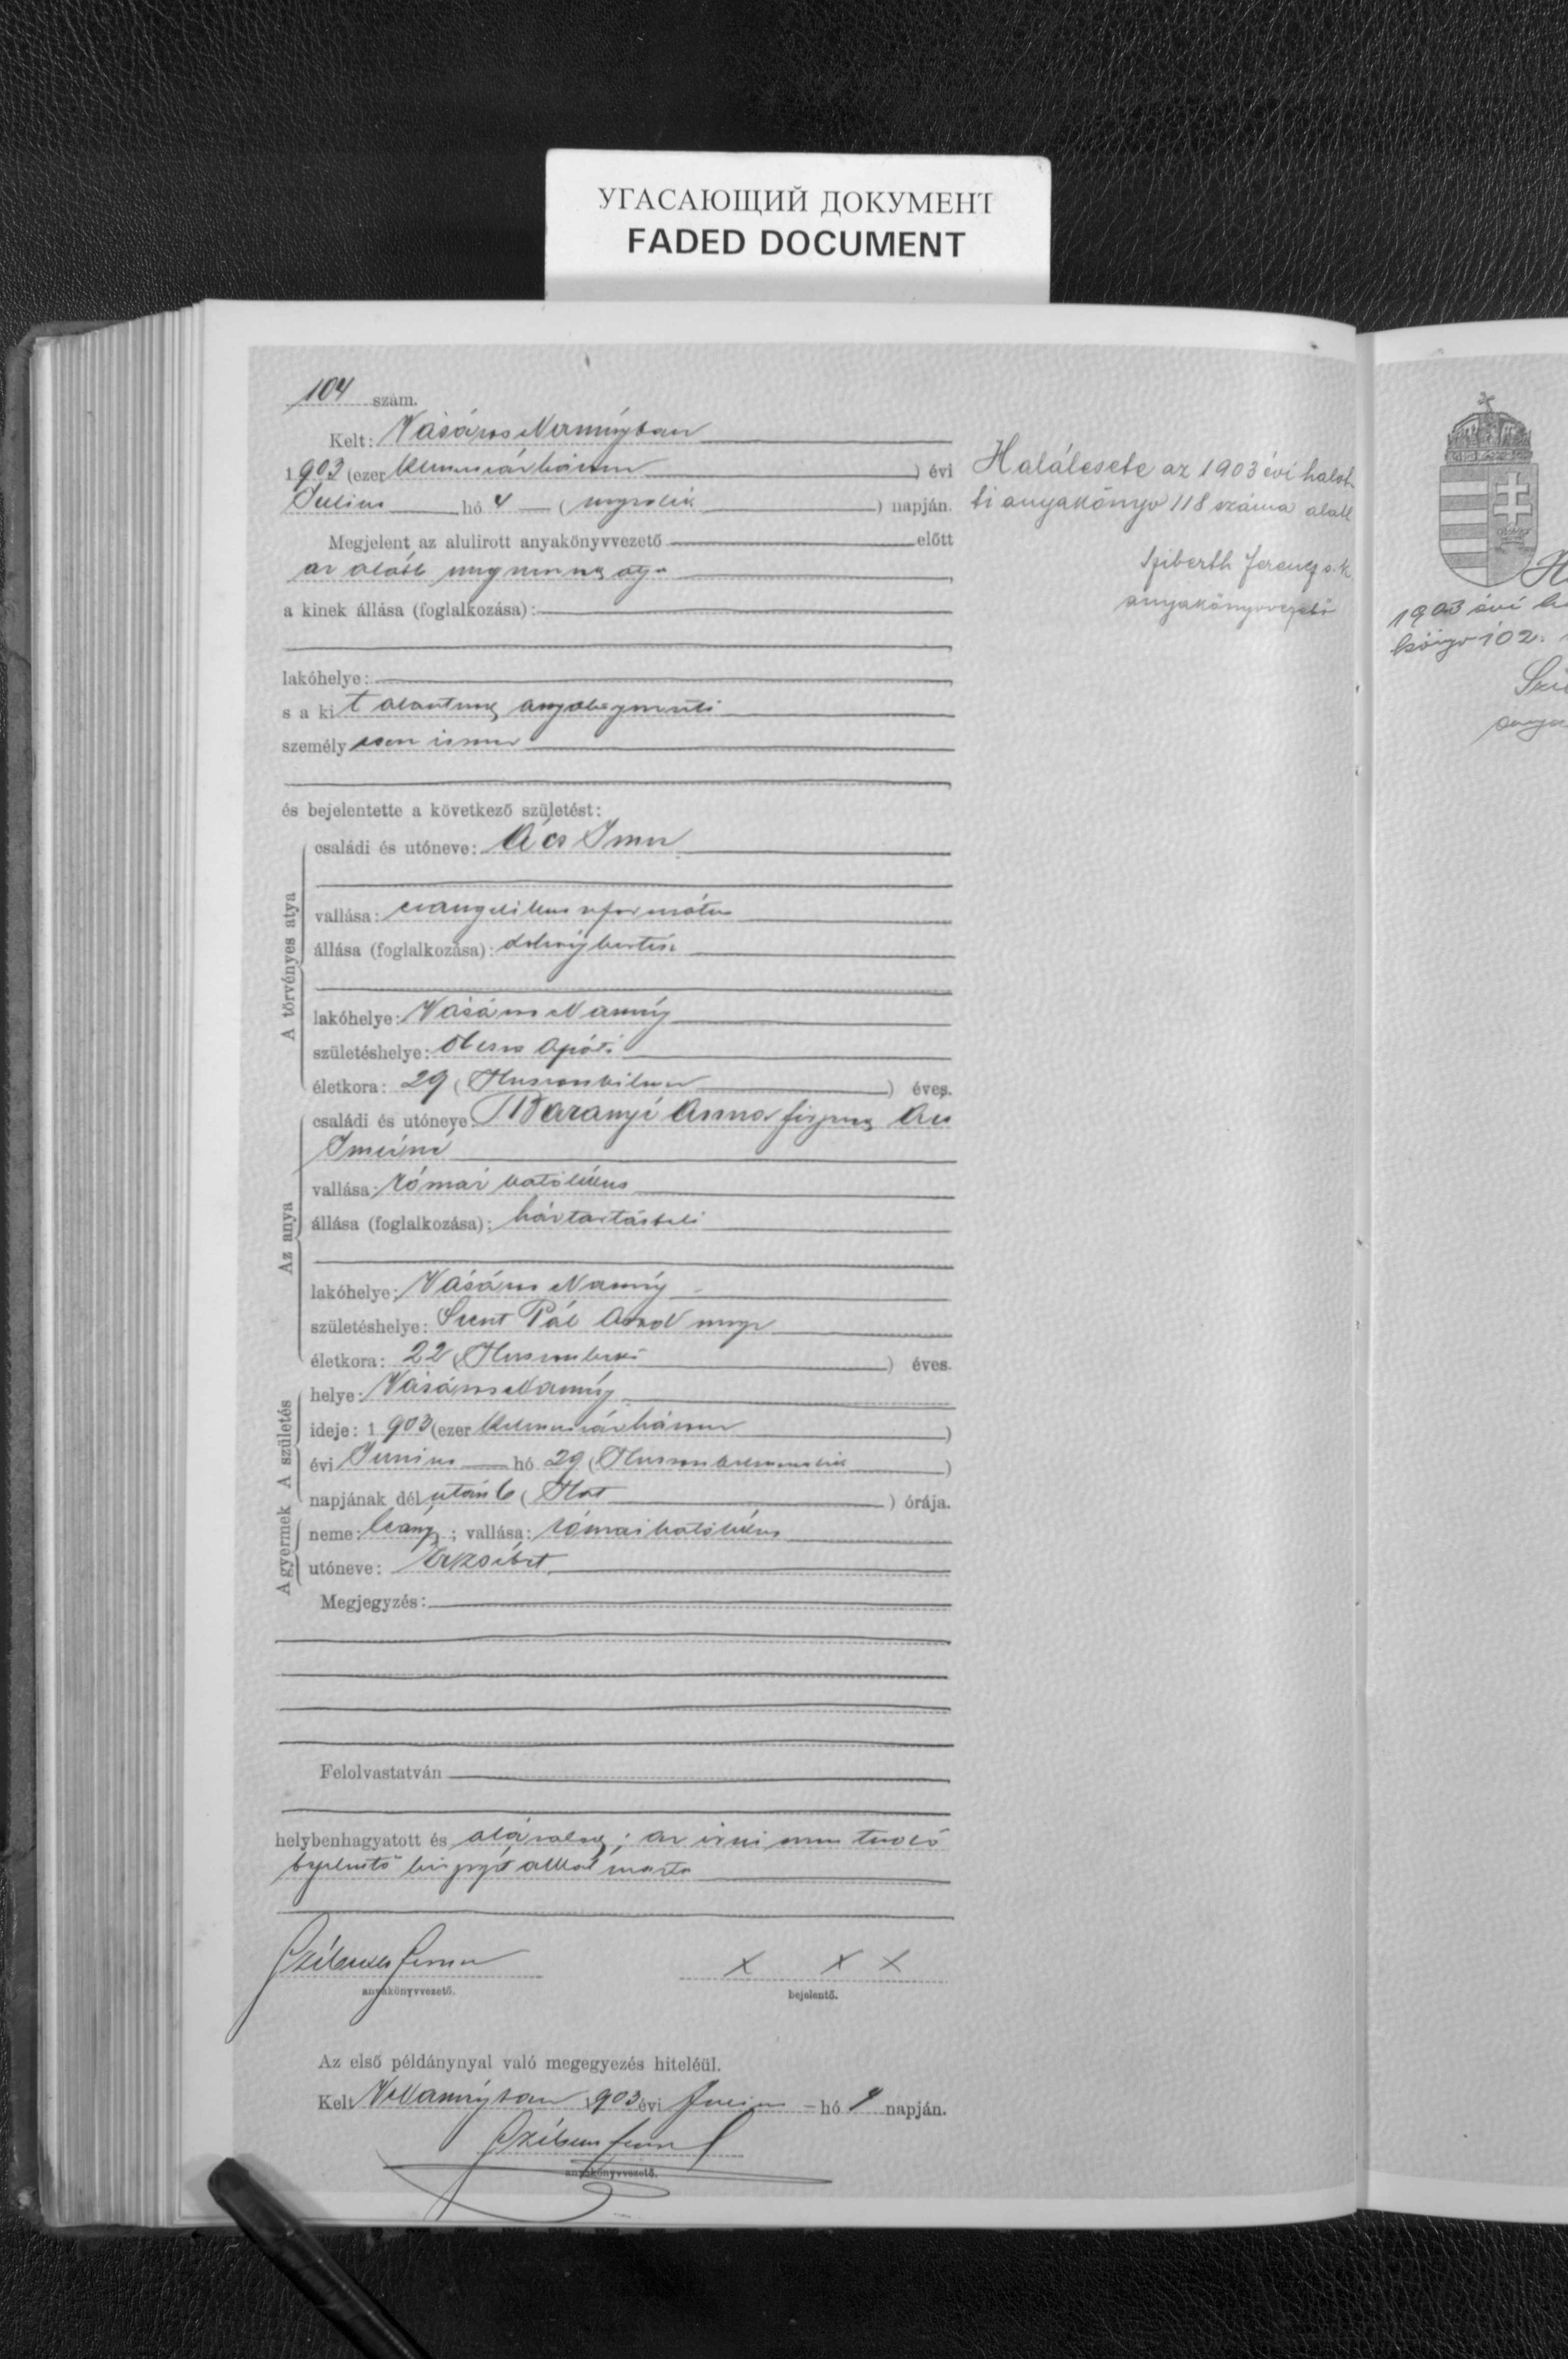 УГАСАЮЩИЙ ДОКУМЕНТ
FADED DOCUMENT
104 szám.
Kelt: Vásáros Naményban
1903 (ezer kilencszázhárom) évi
Julius hó 4 (negyedik) napján.
Megjelent az alulirott anyakönyvvezető előtt
az alább megnevezett atya
a kinek állása (foglalkozása):
lakóhelye:
s a kit alantirott anyakönyvvezető
személyesen ismer
és bejelentette a következő születést:
A törvényes atya
családi és utóneve: Ács Imre
vallása: evangelikus református
állása (foglalkozása):
lakóhelye: Vásáros Namény
születéshelye: Olcsva Apáti
életkora: 29 (Huszonkilenc) éves.
Az anya
családi és utóneve: Baranyi Anna férjezett Ács
Imréné
vallása: római katolikus
állása (foglalkozása): háztartásbeli
lakóhelye: Vásáros Namény
születéshelye: Szent Pál Arad megye
életkora: 22 (Huszonkettő) éves.
A gyermek A születés
helye: Vásáros Namény
ideje: 1903 (ezer kilencszázhárom)
évi Junius hó 29 (Huszonkilencedik)
napjának délután 6 (Hat) órája.
neme: leány; vallása: római katolikus
utóneve: Erzsébet
Megjegyzés:
Felolvastatván
helybenhagyatott és aláiratott; az irni nem tudó
bejelentő kézjegyével látta
anyakönyvvezető.
x x x
bejelentő.
Az első példánynyal való megegyezés hiteléül.
Kelt VNaményban 1903 évi Julius hó 4 napján.
anyakönyvvezető.
Halálesete az 1903 évi halot
ti anyakönyv 118 száma alatt
Sziberth Ferencz s. k.
anyakönyvvezető
1903 évi
könyv 102.